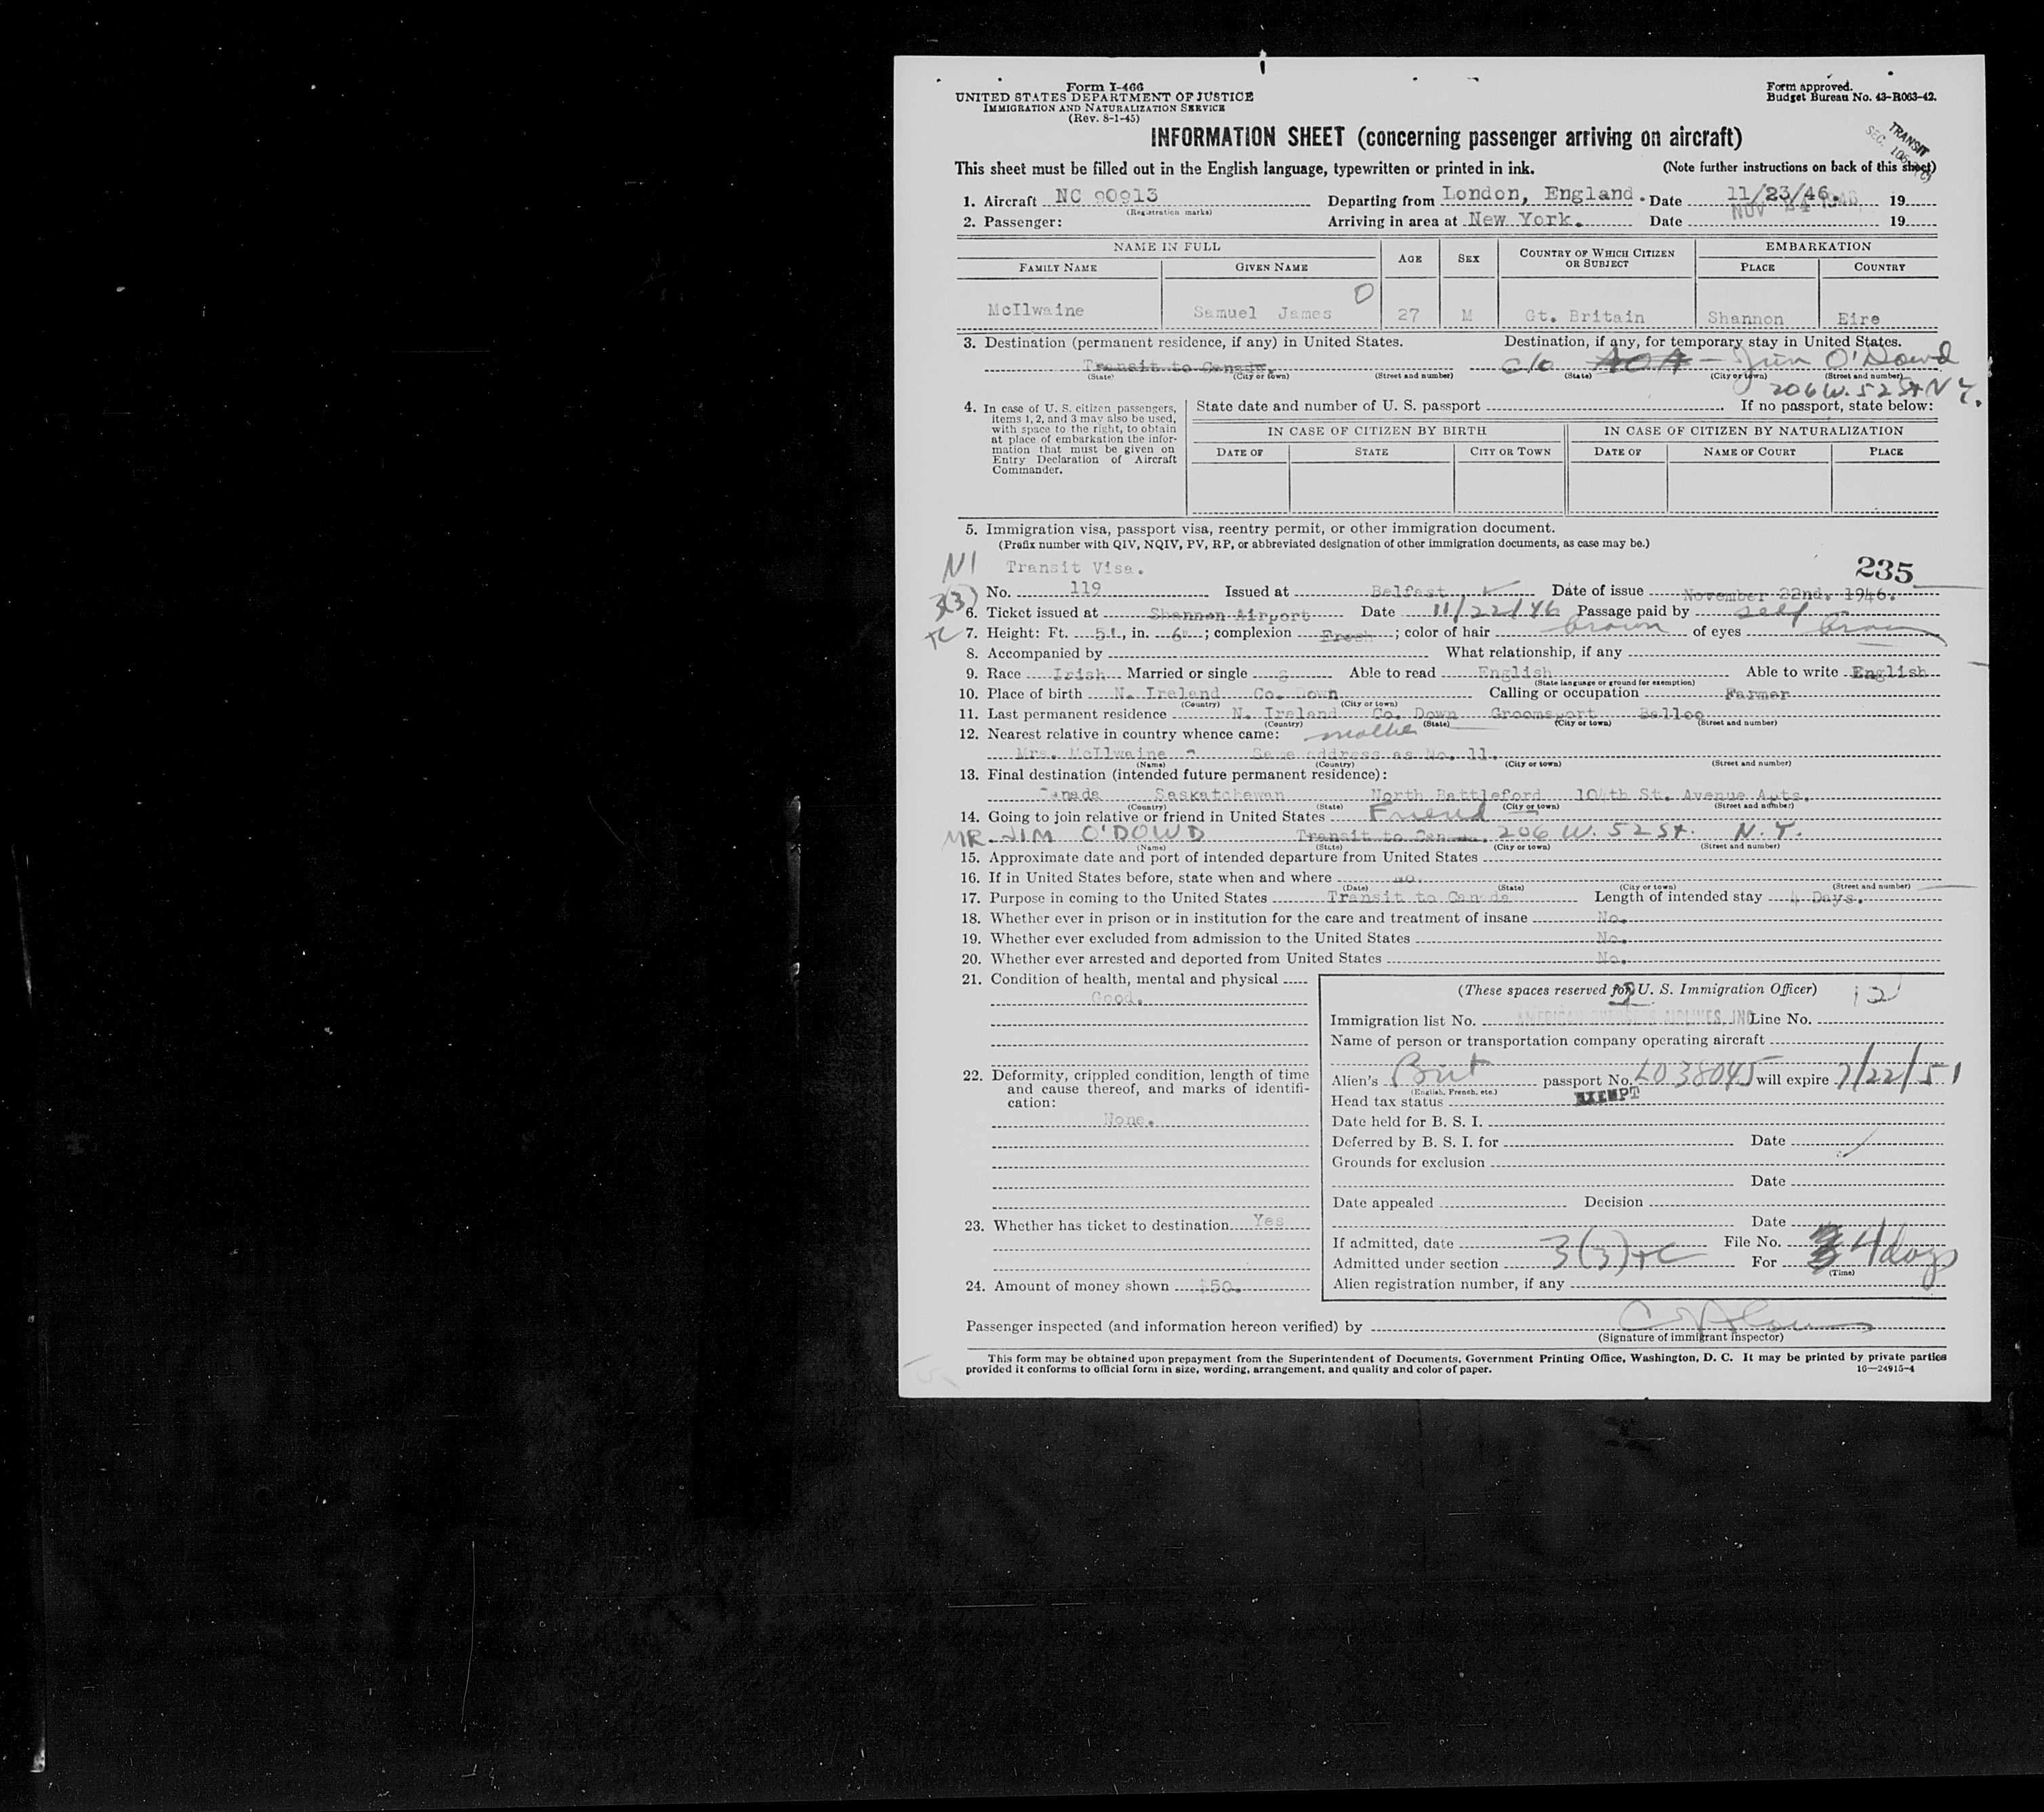 Form I-466
UNITED STATES DEPARTMENT OF JUSTICE
IMMIGRATION AND NATURALIZATION SERVICE
(Rev. 8-1-45)
Form approved.
Budget Bureau No. 43-R063-42.
INFORMATION SHEET (concerning passenger arriving on aircraft)
TRANSIT
This sheet must be filled out in the English language, typewritten or printed in ink. (Note further instructions on back of this sheet)
1. Aircraft NC 90913 Departing from London, England. Date 11/23/46. 19
(Registration marks)
2. Passenger: Arriving in area at New York. Date NOV 24 1946 19
NAME IN FULL AGE SEX COUNTRY OF WHICH CITIZEN OR SUBJECT EMBARKATION
FAMILY NAME GIVEN NAME PLACE COUNTRY
McIlwaine Samuel James 27 M Gt. Britain Shannon Eire
3. Destination (permanent residence, if any) in United States. Destination, if any, for temporary stay in United States.
Transit to Canada. c/o AOA - Jim O'Dowd
(State) (City or town) (Street and number) (State) (City or town) (Street and number)
206 W. 52 St N Y.
4. In case of U. S. citizen passengers, items 1, 2, and 3 may also be used, with space to the right, to obtain at place of embarkation the information that must be given on Entry Declaration of Aircraft Commander.
State date and number of U. S. passport If no passport, state below:
IN CASE OF CITIZEN BY BIRTH IN CASE OF CITIZEN BY NATURALIZATION
DATE OF STATE CITY OR TOWN DATE OF NAME OF COURT PLACE
5. Immigration visa, passport visa, reentry permit, or other immigration document.
(Prefix number with QIV, NQIV, PV, RP, or abbreviated designation of other immigration documents, as case may be.)
NI Transit Visa. 235
3(3) No. 119 Issued at Belfast, Date of issue November 22nd. 1946.
6. Ticket issued at Shannon Airport Date 11/22/46 Passage paid by self
7. Height: Ft. 5', in. 6"; complexion Fresh; color of hair brown of eyes brown
8. Accompanied by What relationship, if any
9. Race Irish Married or single s Able to read English Able to write English
(State language or ground for exemption)
10. Place of birth N. Ireland Co. Down Calling or occupation Farmer
(Country) (City or town)
11. Last permanent residence N. Ireland Co. Down Groomsport Balloo
(Country) (State) (City or town) (Street and number)
12. Nearest relative in country whence came: mother
Mrs. McIlwaine - Same address as No. 11.
(Name) (Country) (City or town) (Street and number)
13. Final destination (intended future permanent residence):
Canada Saskatchewan North Battleford 104th St. Avenue Apts.
(Country) (State) (City or town) (Street and number)
14. Going to join relative or friend in United States Friend
MR. JIM O'DOWD Transit to Canada. 206 W. 52 St. N. Y.
(Name) (State) (City or town) (Street and number)
15. Approximate date and port of intended departure from United States
16. If in United States before, state when and where no.
(Date) (State) (City or town) (Street and number)
17. Purpose in coming to the United States Transit to Canada Length of intended stay 4 Days.
18. Whether ever in prison or in institution for the care and treatment of insane No.
19. Whether ever excluded from admission to the United States No.
20. Whether ever arrested and deported from United States No.
21. Condition of health, mental and physical
Good.
22. Deformity, crippled condition, length of time and cause thereof, and marks of identification:
None.
23. Whether has ticket to destination Yes
24. Amount of money shown $50.
(These spaces reserved for U. S. Immigration Officer) 12
Immigration list No. AMERICAN OVERSEAS AIRLINES, INC Line No.
Name of person or transportation company operating aircraft
Alien's Brit passport No. L038045 will expire 7/22/51
(English, French, etc.)
Head tax status EXEMPT
Date held for B. S. I.
Deferred by B. S. I. for Date
Grounds for exclusion
Date
Date appealed Decision
Date
If admitted, date File No.
Admitted under section 3(3)+c For 4 days
(Time)
Alien registration number, if any
Passenger inspected (and information hereon verified) by
(Signature of immigrant inspector)
This form may be obtained upon prepayment from the Superintendent of Documents, Government Printing Office, Washington, D. C. It may be printed by private parties
provided it conforms to official form in size, wording, arrangement, and quality and color of paper. 16—24915-4